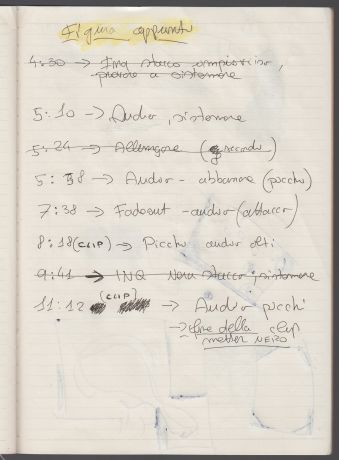 Figuro appunti
4:30 → Inq stacco improvviso,
provare a sistemare
5:10 → Audio, sistemare
5:24 → Allungare (secondo)
5:58 → Audio - abbassare (picchi)
7:38 → Fadeout - audio (attacco)
8:18 (CLIP) → Picchi audio alti
9:41 → INQ Nero stacco, sistemare
11:12 (CLIP) → Audio picchi
→ fine della clip
metter NERO